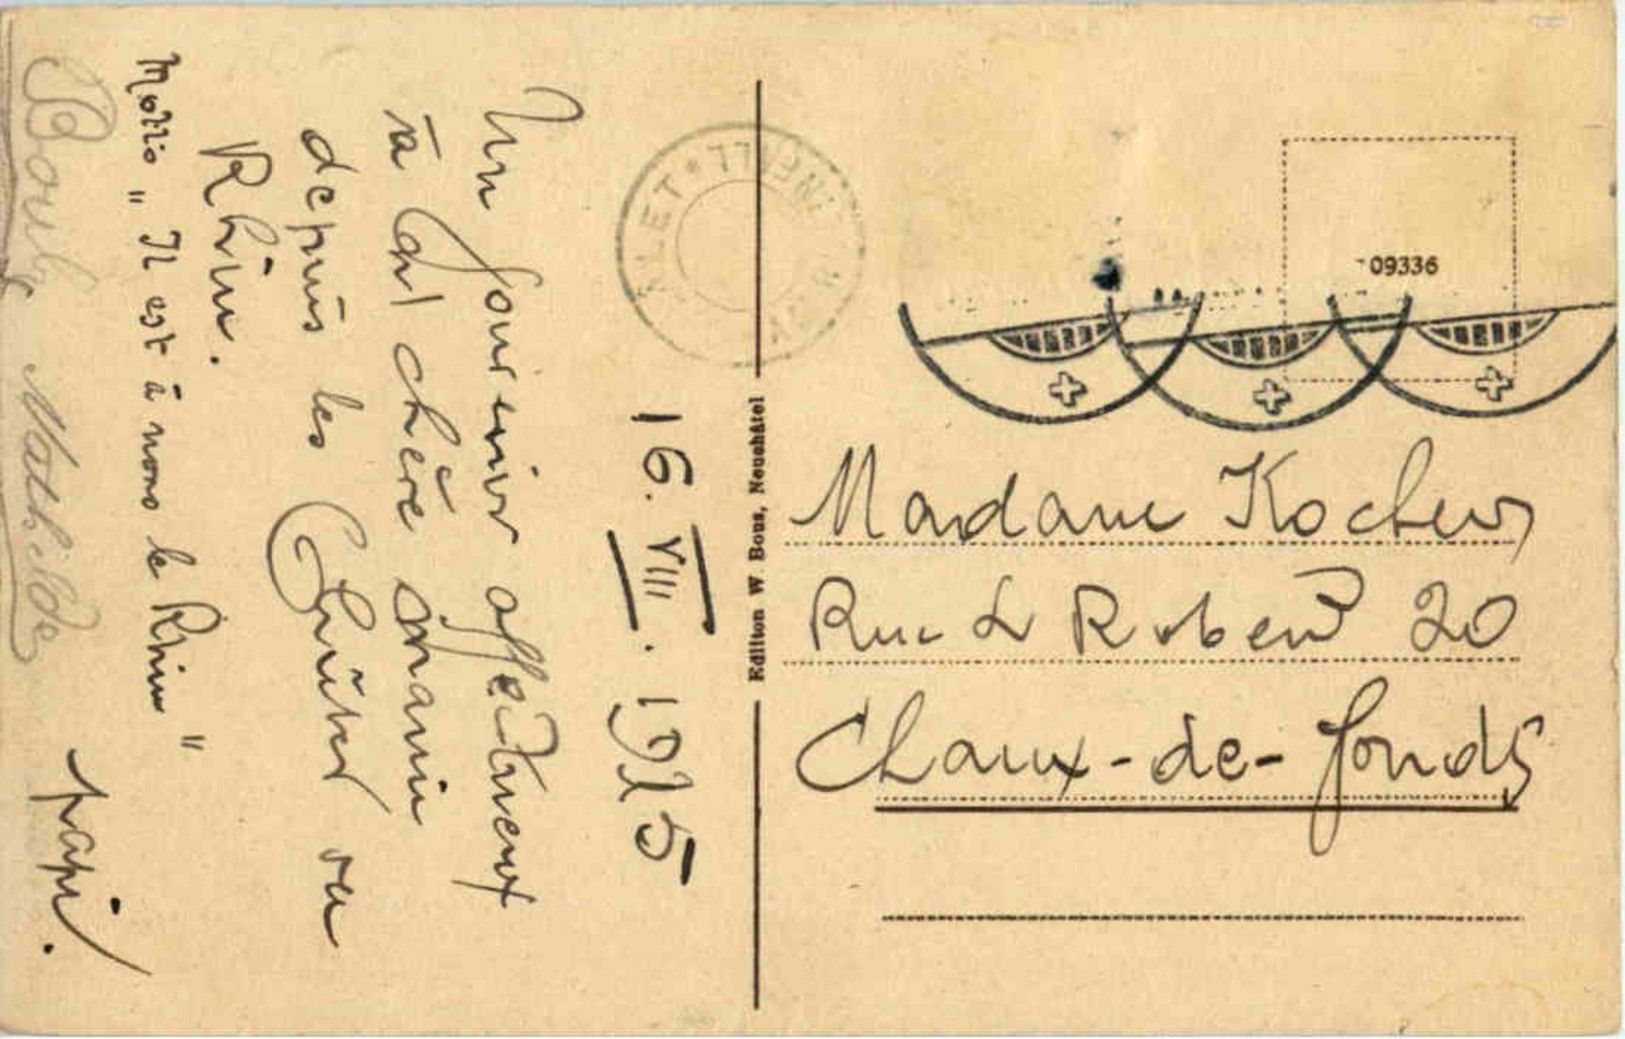 16. VIII. 1925
Un souvenir affectueux
à la chère mamie
depuis les au
Rhin.
Motto " Il est à nous le Rhin "
Mathilde
papi.
Edition W. Bous, Neuchâtel
09336
Madame Kocher
Rue L Robert 20
Chaux-de-fonds